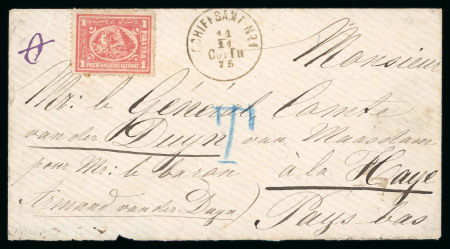 1 PIASTRA 1
POSTE KHEDEUIE EGIZIANE
SCHIFFSAMT No 1
11
11
Corfu
75
T
Monsieur
Mr: le Général Comte
van der Duyn van Maasdam
pour Mr: le baron à la Haye
Armand van der Duyn) Pays bas